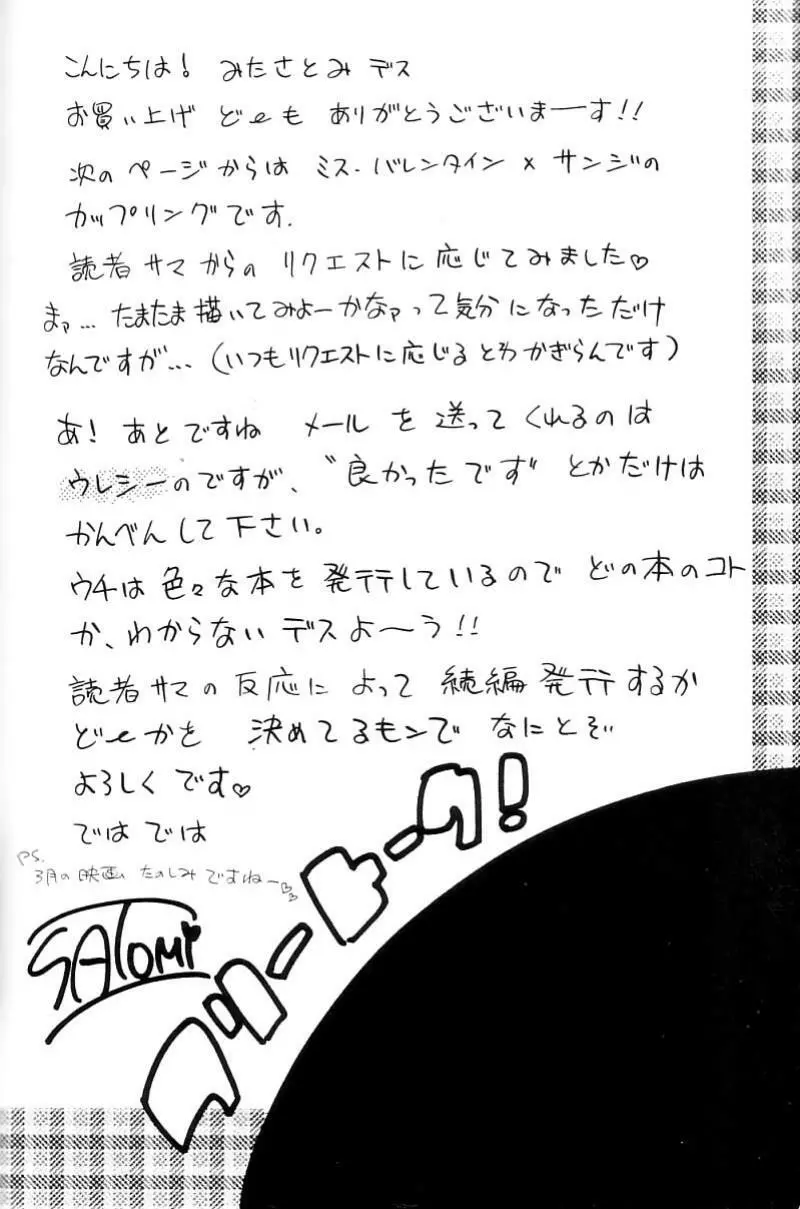 こんにちは! みたさとみ デス
お買い上げ どーも ありがとうございまーす!!
次の ページからは ミス・バレンタイン × サンジの
カップリングです.
読者サマからの リクエストに応じてみました♡
まァ… たまたま描いてみよーかなァって気分になっただけ
なんですが… (いつもリクエストに応じるとわかぎらんです)
あ! あとですね メールを送ってくれるのは
ウレシーのですが、“良かったです” とかだけは
かんべんして下さい。
ウチは色々な本を発行しているのでどの本のコト
か、わからないデスよ〜う!!
読者サマの反応によって 続編発行するか
どーかを 決めてるモンで なにとぞ
よろしくです♡
ではでは
PS.
3月の映画 たのしみですねー♡♡
SATOMi
フリートーク!